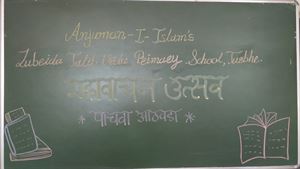 Anjuman-I-Islam's
Zubeida Talib Primary School, Turbhe.
महावाचन उत्सव
* पाचवा आठवडा *